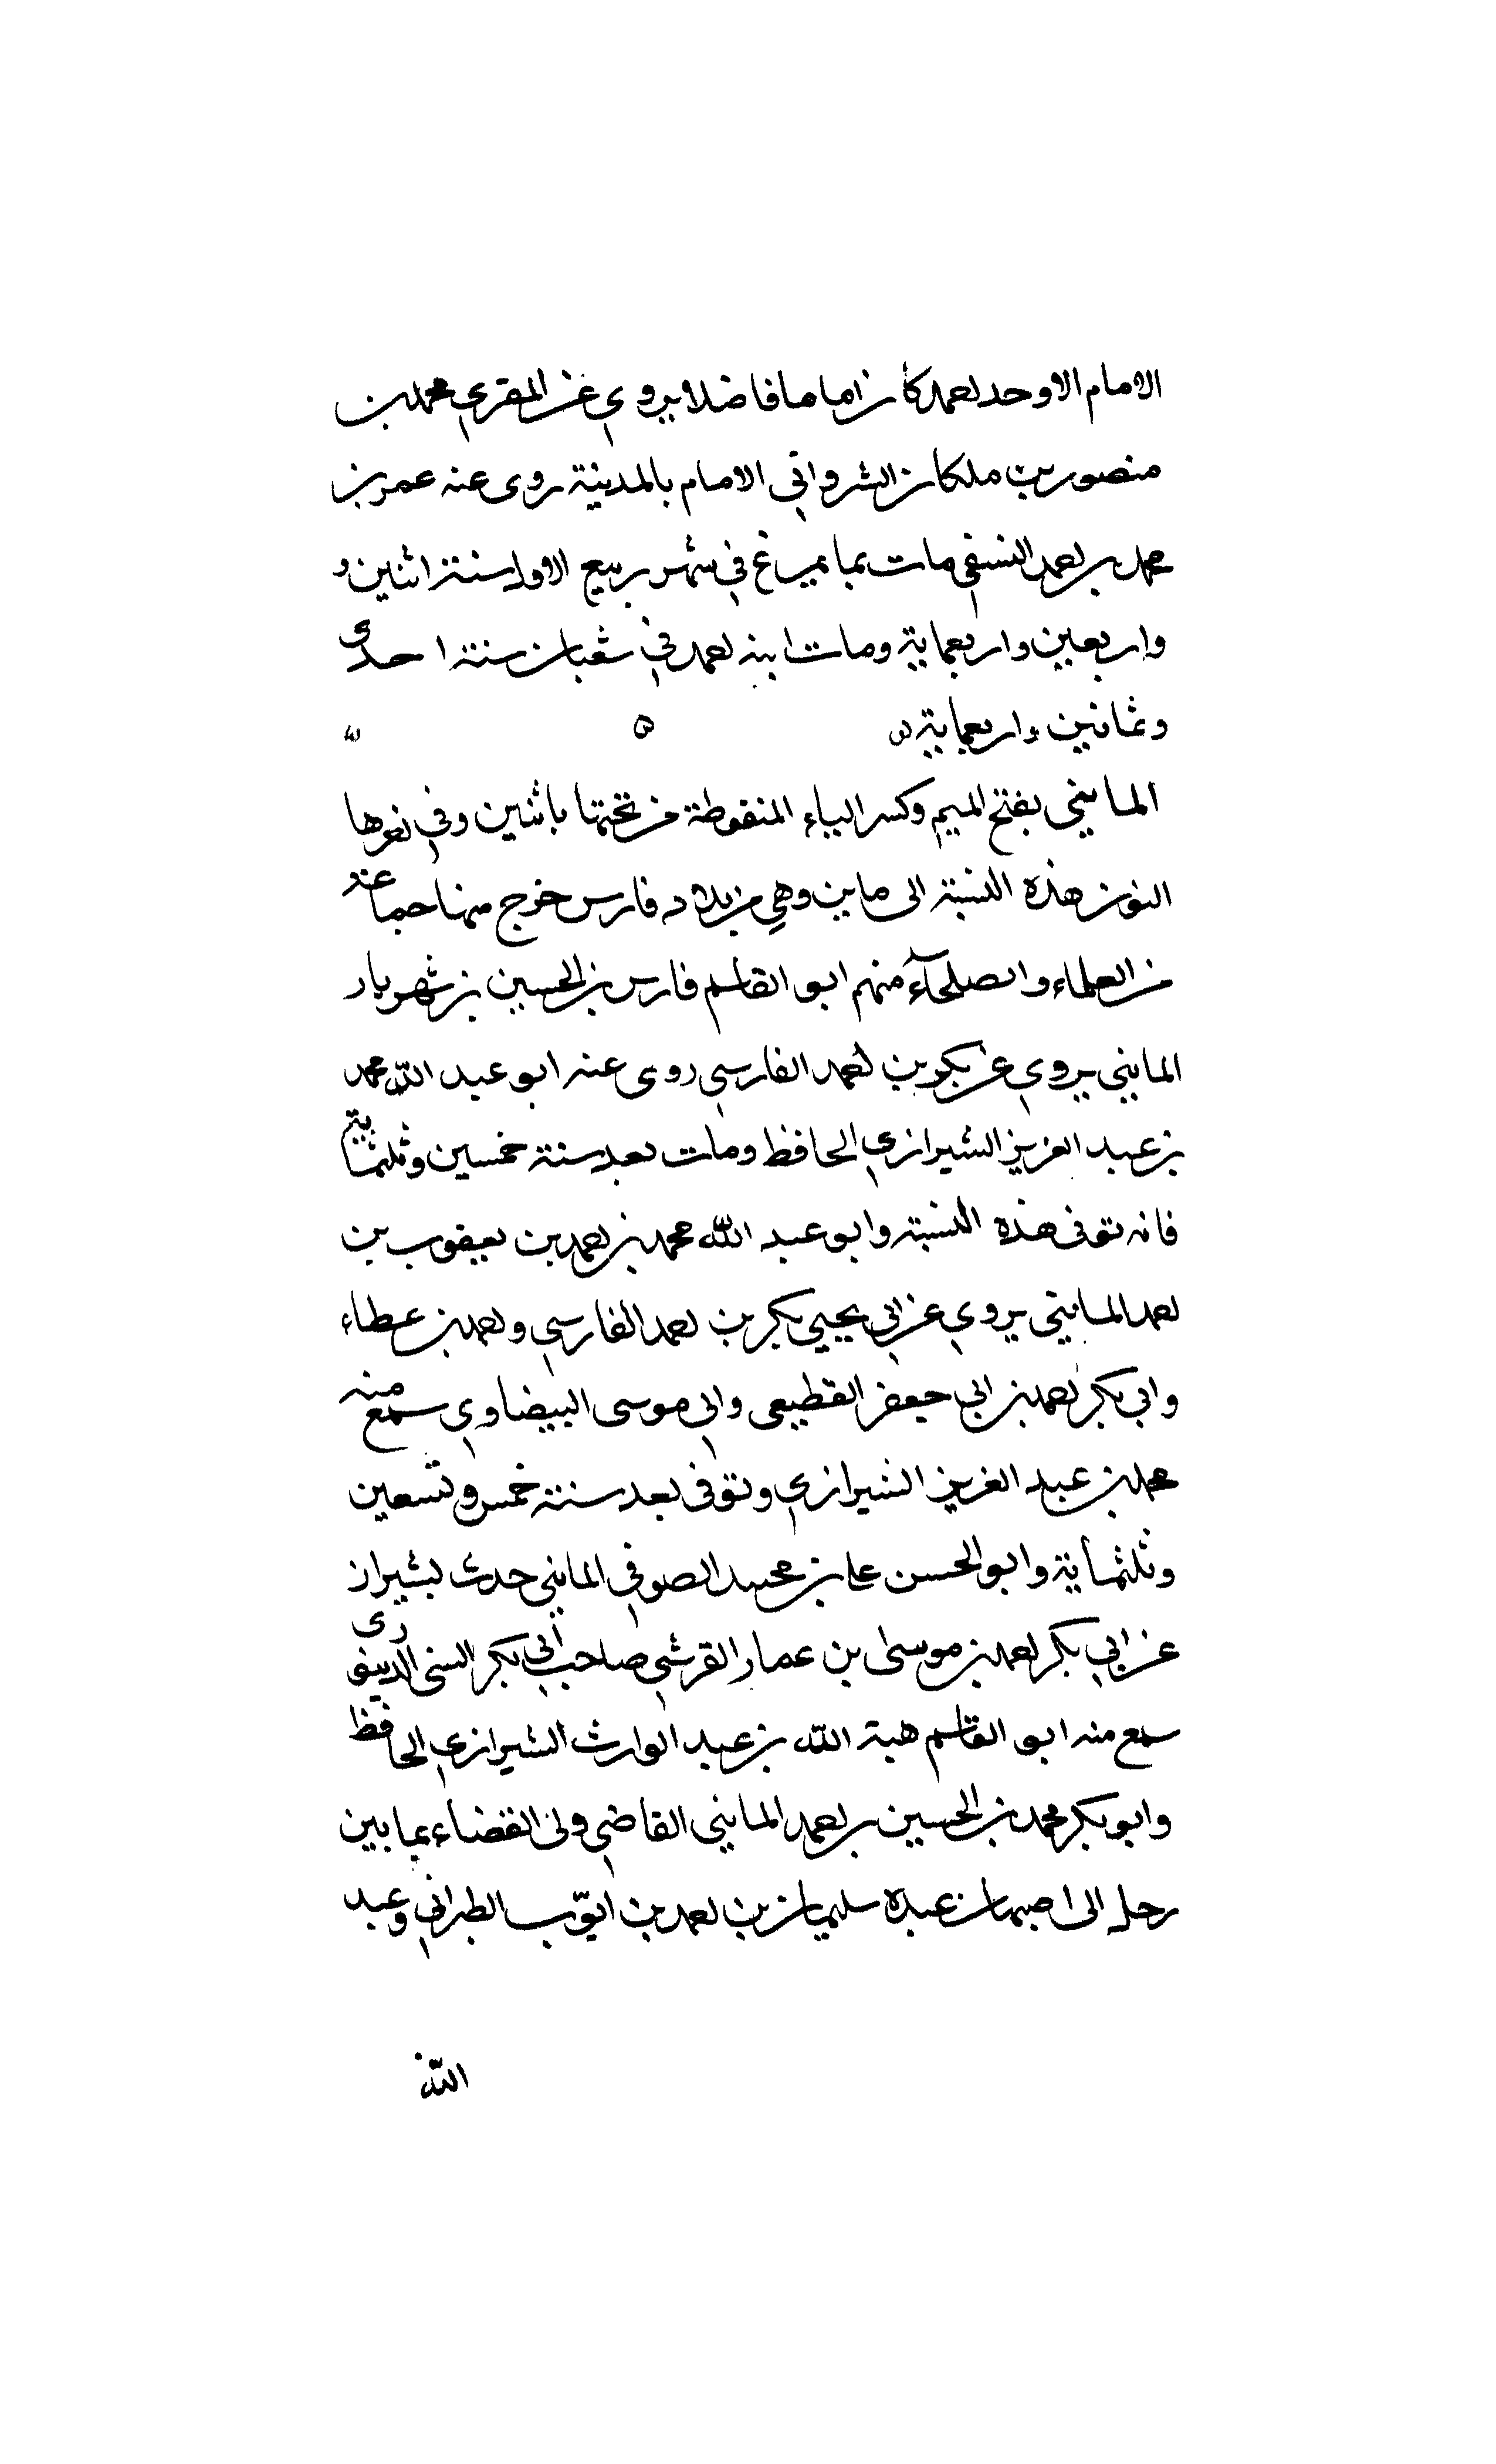 الامام الاوحد احمد كان اماما فاضلا يروي عن المقري محمد بن
منصور بن ملكان الشرواني الامام بالمدينة روى عنه عمر بن
محمد بن احمد النسفي مات بمايمرغ في شهر ربيع الاول سنة اثنين و
واربعين واربعماية ومات ابنه احمد في شعبان سنة احدى
وثمانين واربعماية
المايني بفتح الميم وكسر الياء المنقوطة من تحتها باثنين وفي اخرها
النون هذه النسبة الى ماين وهي من بلاد فارس خرج منها جماعة
من العلماء والصلحآء منهم ابو القاسم فارس بن الحسين بن شهريار
المايني يروي عن بكر بن احمد الفارسي روى عنه ابو عبد الله محمد
بن عبد العزيز الشيرازي الحافظ ومات بعد سنة خمسين وثلثماية
فانه توفى هذه النسبة وابو عبد الله محمد بن احمد بن يعقوب بن
احمد المايني يروي عن ابي يحيي بكر بن احمد الفارسي واحمد بن عطاء
وابي بكر احمد بن ابي جعفر القطيعي وابي موسى البيضاوي سمع منه
محمد بن عبد العزيز الشيرازي وتوفى بعد سنة خمس وتسعين
وثلثماية وابو الحسن علي بن محمد الصوفي المايني حدث بشيراز
عن ابي بكر احمد بن موسى بن عمار القرشي صاحب ابي بكر السني الدينوري
سمع منه ابو القاسم هبة الله بن عبد الوارث الشيرازي الحافظ
وابو بكر محمد بن الحسين بن احمد المايني القاضي ولى القضاء بمايين
رحل الى اصبهان عبده سليمان بن احمد بن ايوّب الطبراني وعبد
الله